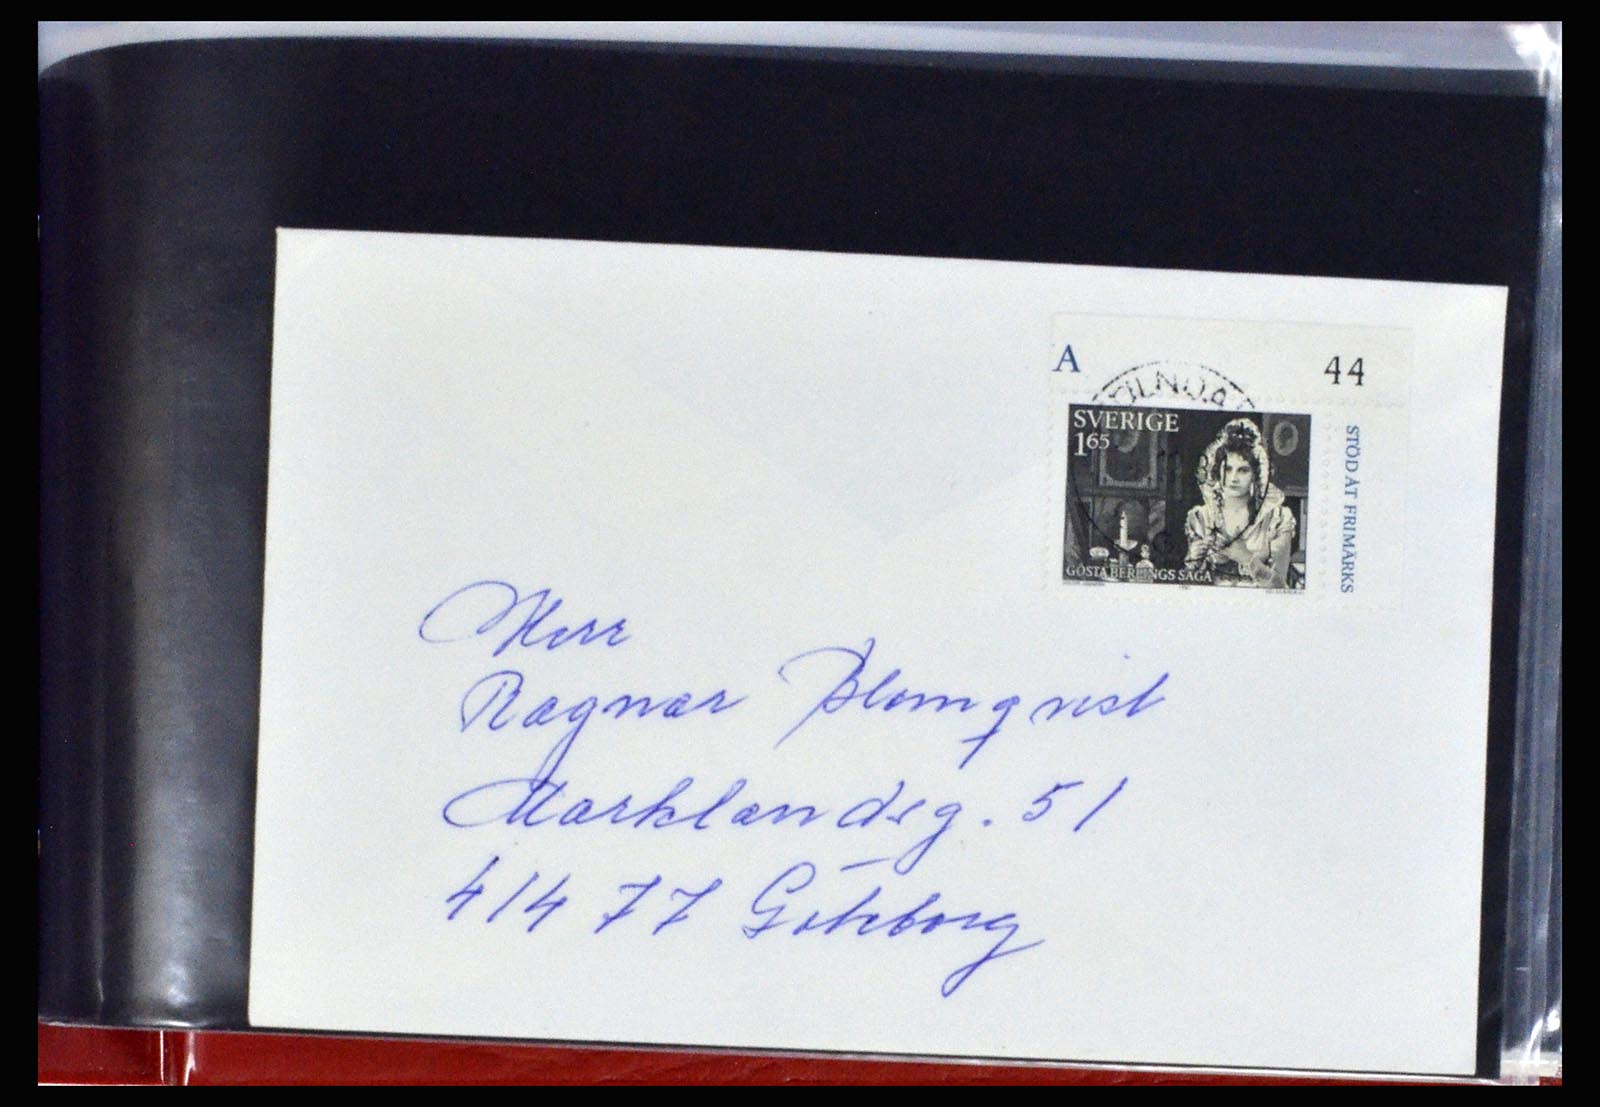 A 44
SVERIGE
1 65
STÖD ÅT FRIMÄRKS
GÖSTA BERLINGS SAGA
Herr
Ragnar Blomqvist
Marklandsg. 51
414 77 Göteborg